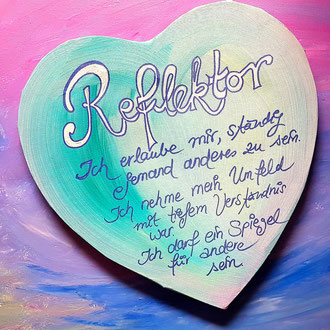 Reflektor
Ich erlaube mir, ständig
jemand anderes zu sein.
Ich nehme mein Umfeld
mit tiefem Verständnis
war.
Ich darf ein Spiegel
für andere
sein